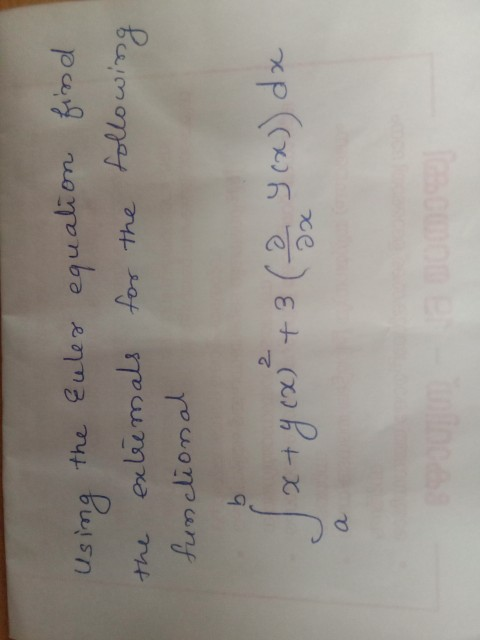 Using the Euler equation find
the extremals for the following
functional
∫_a^b x + y(x)² + 3 (∂/∂x y(x)) dx